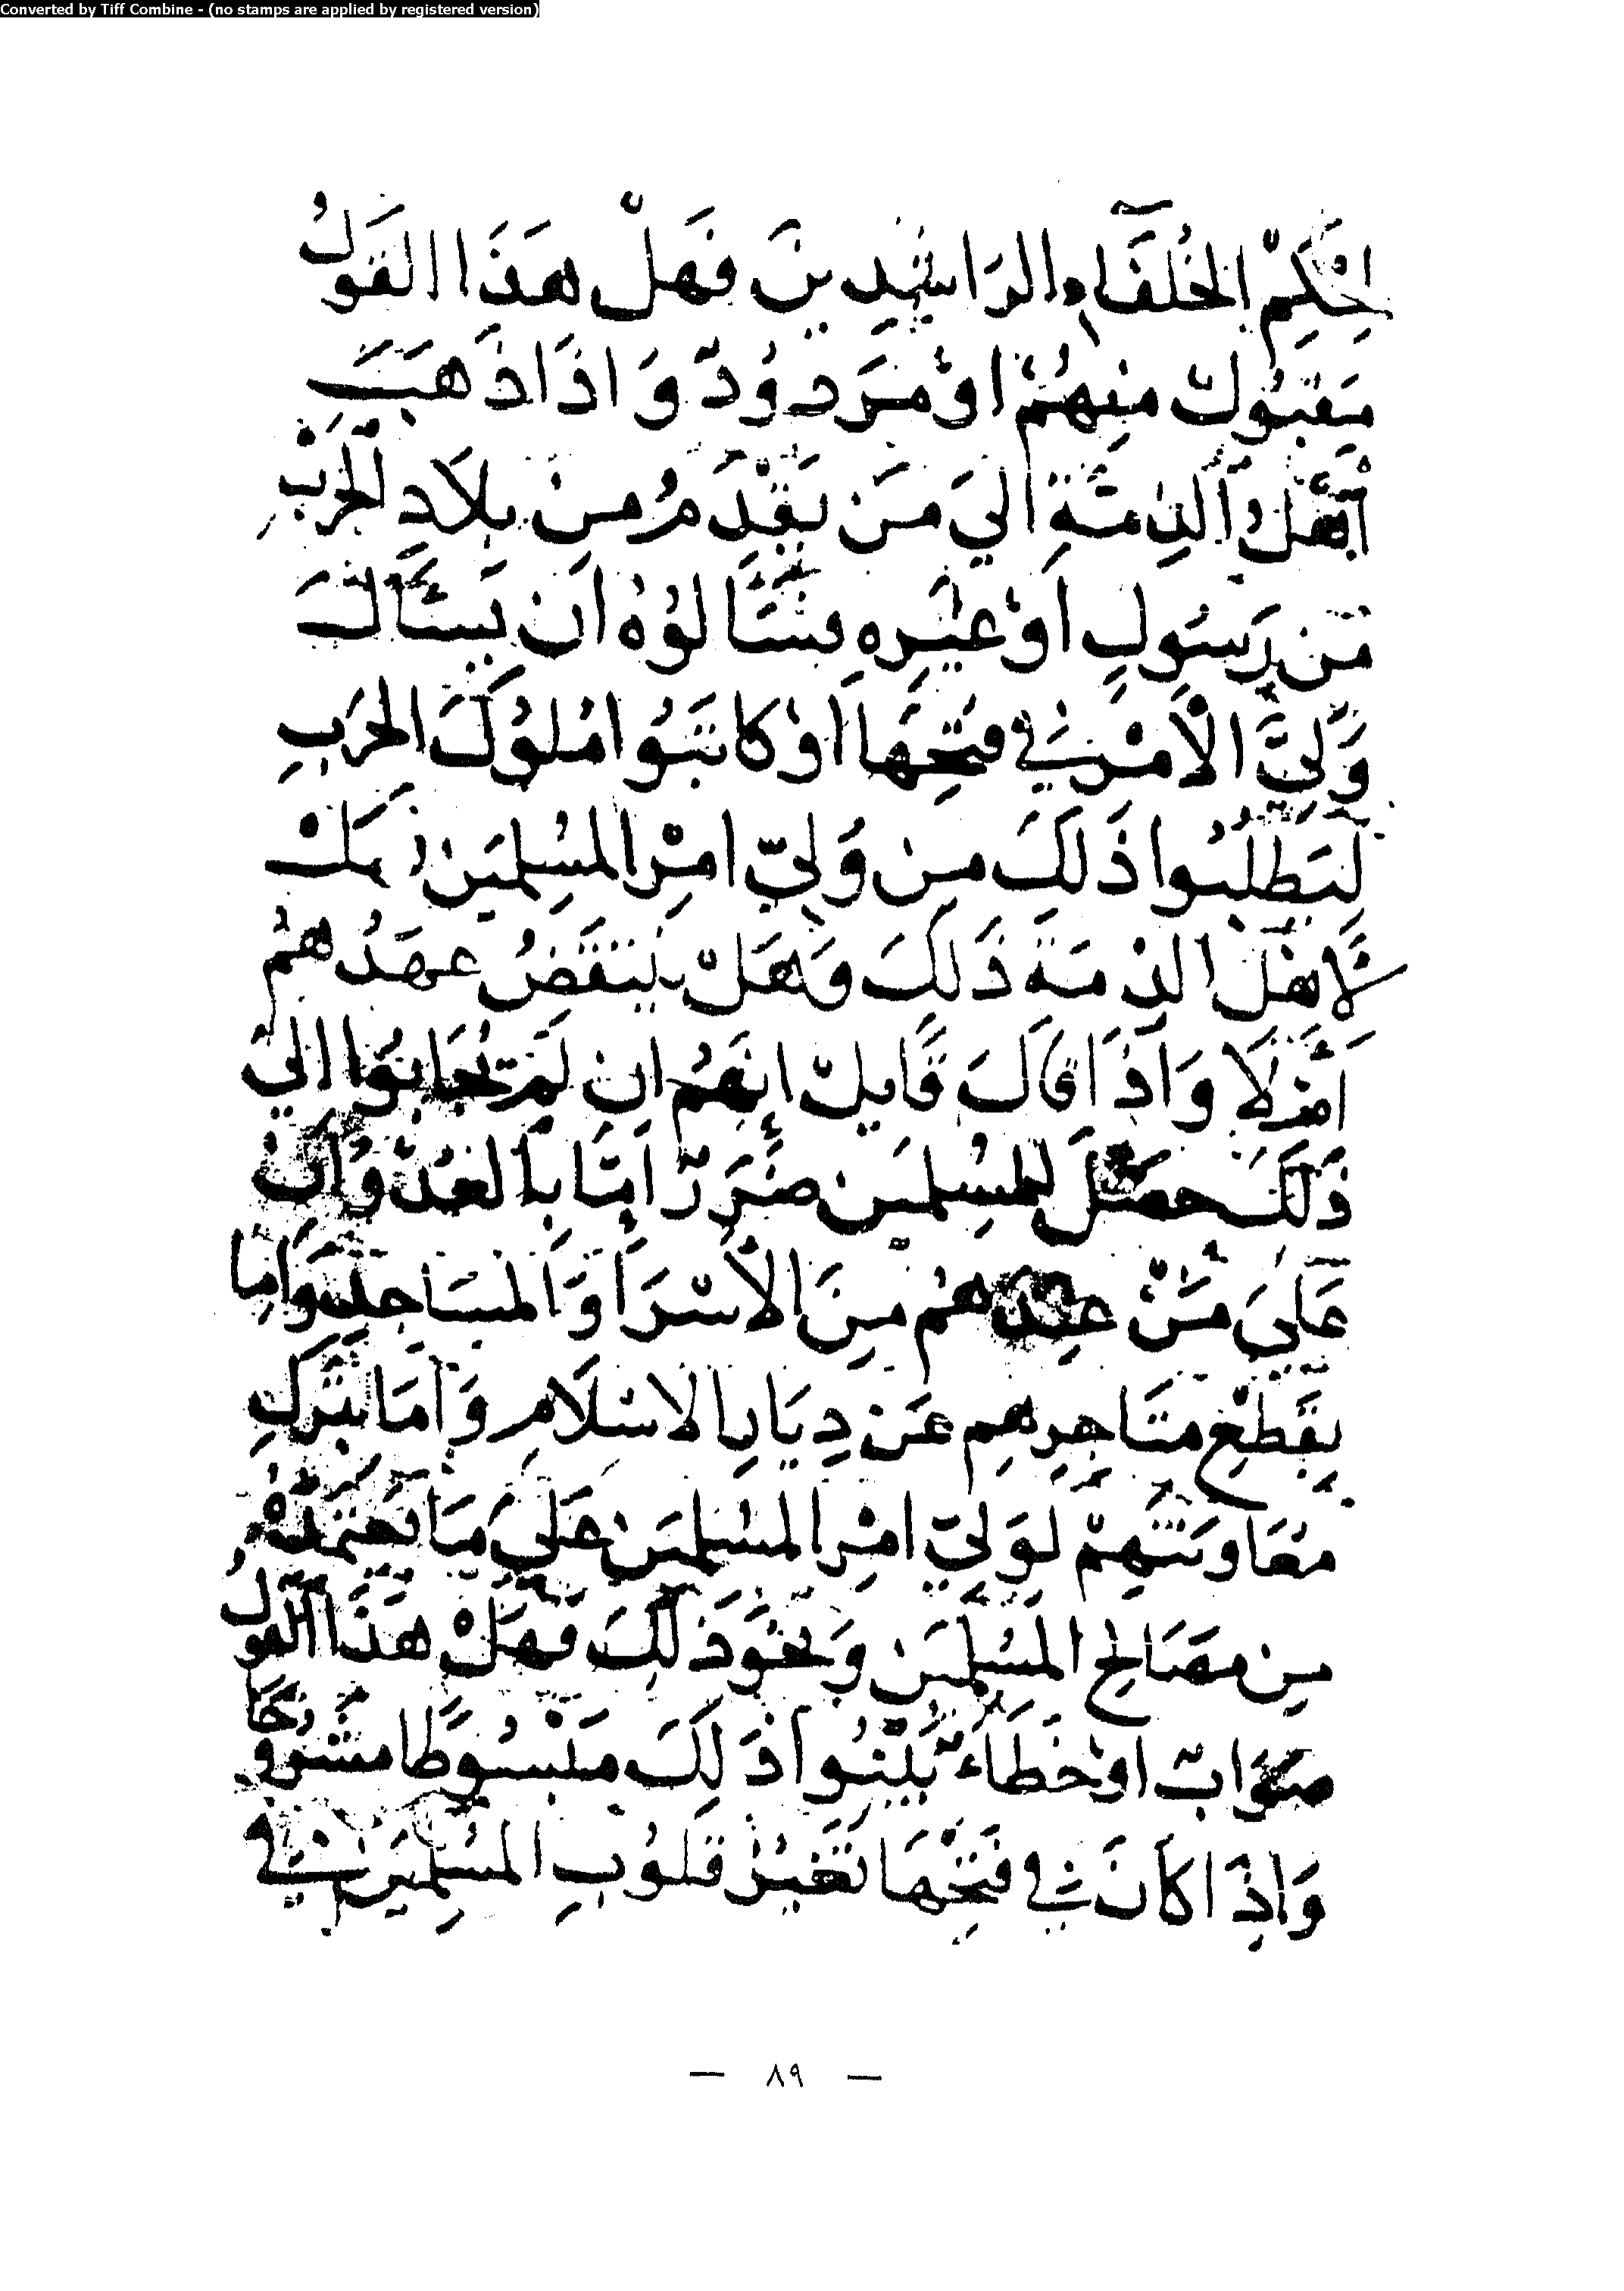 Converted by Tiff Combine - (no stamps are applied by registered version)
الخلفاء الراشدين فهل هذا القول
مقبول منهم او مردود واذا ذهب
أهل الذمة الي من يقدم من بلاد الحرب
من رسول او غيره يسالوه ان يسأل
ولي الامر في فتحها او كاتبوا ملوك الحرب
ليطلبوا ذلك من ولي امر المسلمين
لاهل الذمة ذلك وهل ينتقض عهدهم
ام لا واذا قال قايل انهم ان لم يجابوا الي
ذلك حصل للمسلمين ضرر اما بالعدوان
علي من عندهم من الاسرا والمساجد واما
بقطع متاجرهم عن ديار الاسلام واما بترك
معاونتهم لولي امر المسلمين علي ما يعتمده
من مصالح المسلمين ونحو ذلك فهل هذا القول
صواب او خطاء بينوا ذلك مبسوطا مشروحا
واذا كان في فتحها تغير قلوب المسلمين في
— ٨٩ —